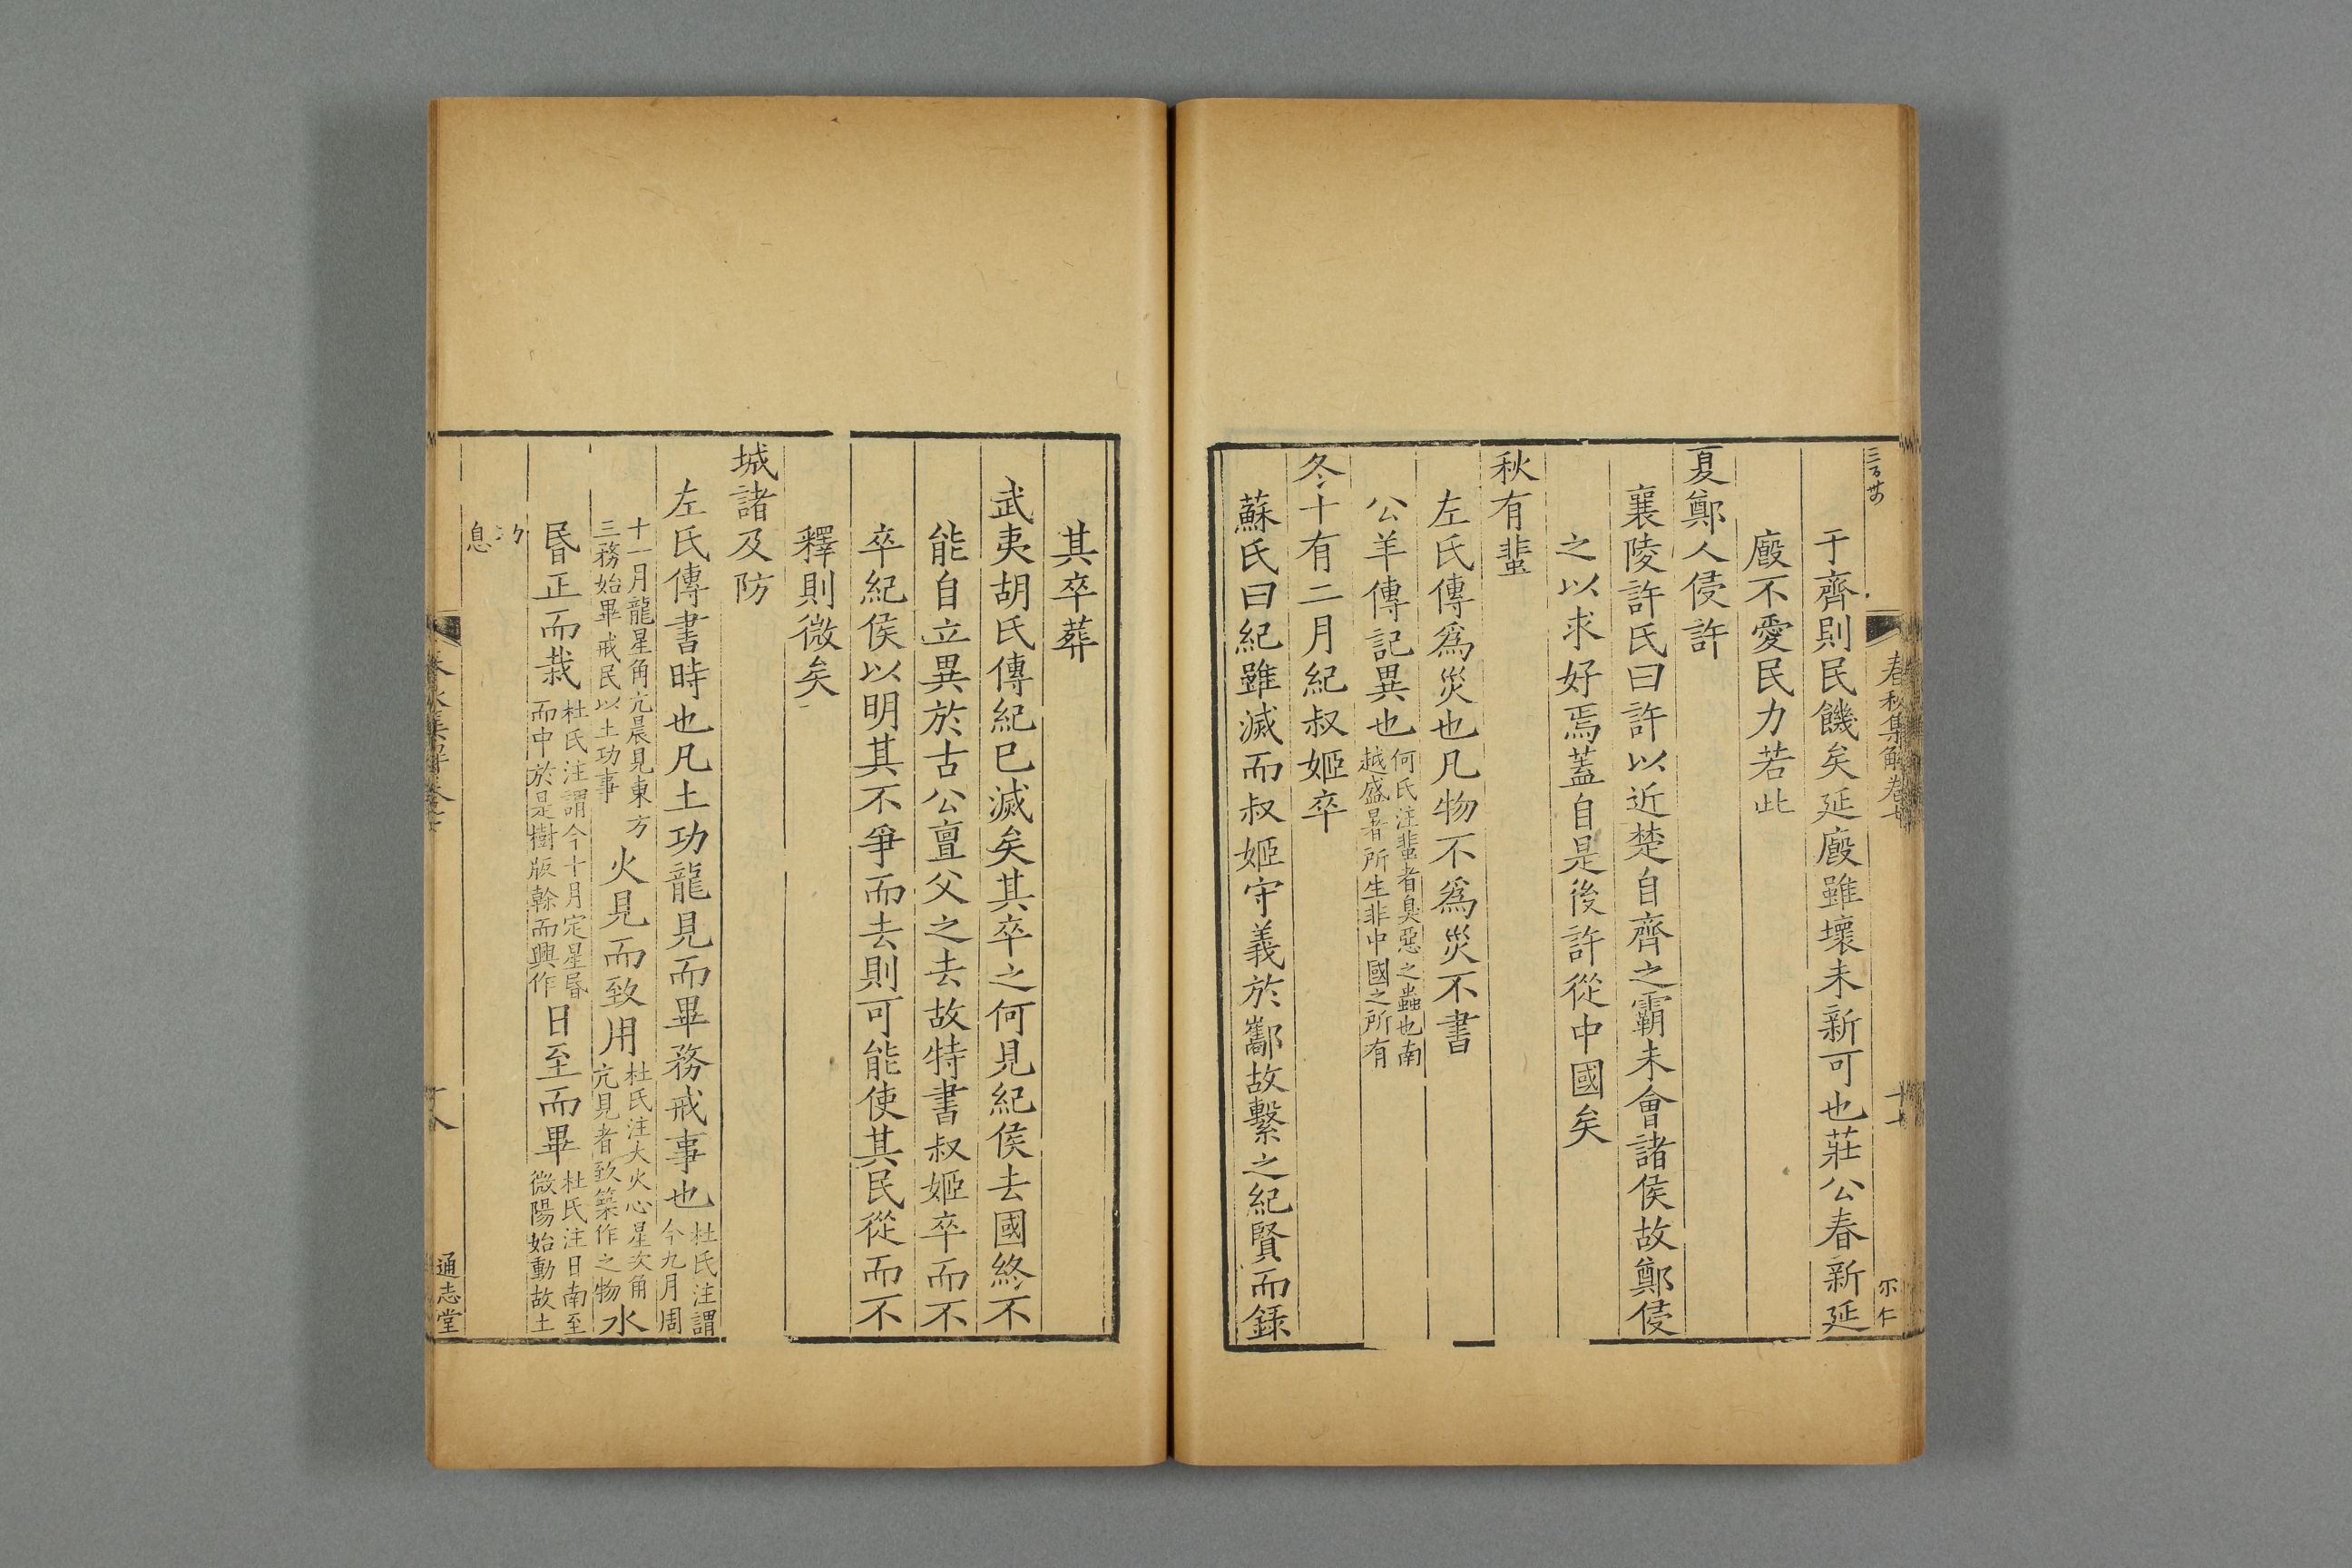 三百廿
春秋集解卷七
十七
尔仁
于齊則民饑矣延廄雖壞未新可也莊公春新延
廄不愛民力若此
夏鄭人侵許
襄陵許氏曰許以近楚自齊之霸未會諸侯故鄭侵
之以求好焉蓋自是後許從中國矣
秋有蜚
左氏傳爲災也凡物不爲災不書
公羊傳記異也何氏注蜚者臭惡之蟲也南越盛暑所生非中國之所有
冬十有二月紀叔姬卒
蘇氏曰紀雖滅而叔姬守義於酅故繫之紀賢而錄
其卒葬
武夷胡氏傳紀已滅矣其卒之何見紀侯去國終不
能自立異於古公亶父之去故特書叔姬卒而不
卒紀侯以明其不爭而去則可能使其民從而不
釋則微矣
城諸及防
左氏傳書時也凡土功龍見而畢務戒事也杜氏注謂今九月周
十一月龍星角亢晨見東方三務始畢戒民以土功事火見而致用杜氏注大火心星次角亢見者致築作之物水
昏正而栽杜氏注謂今十月定星昏而中於是樹版榦而興作日至而畢杜氏注日南至微陽始動故土
功息
十八
通志堂